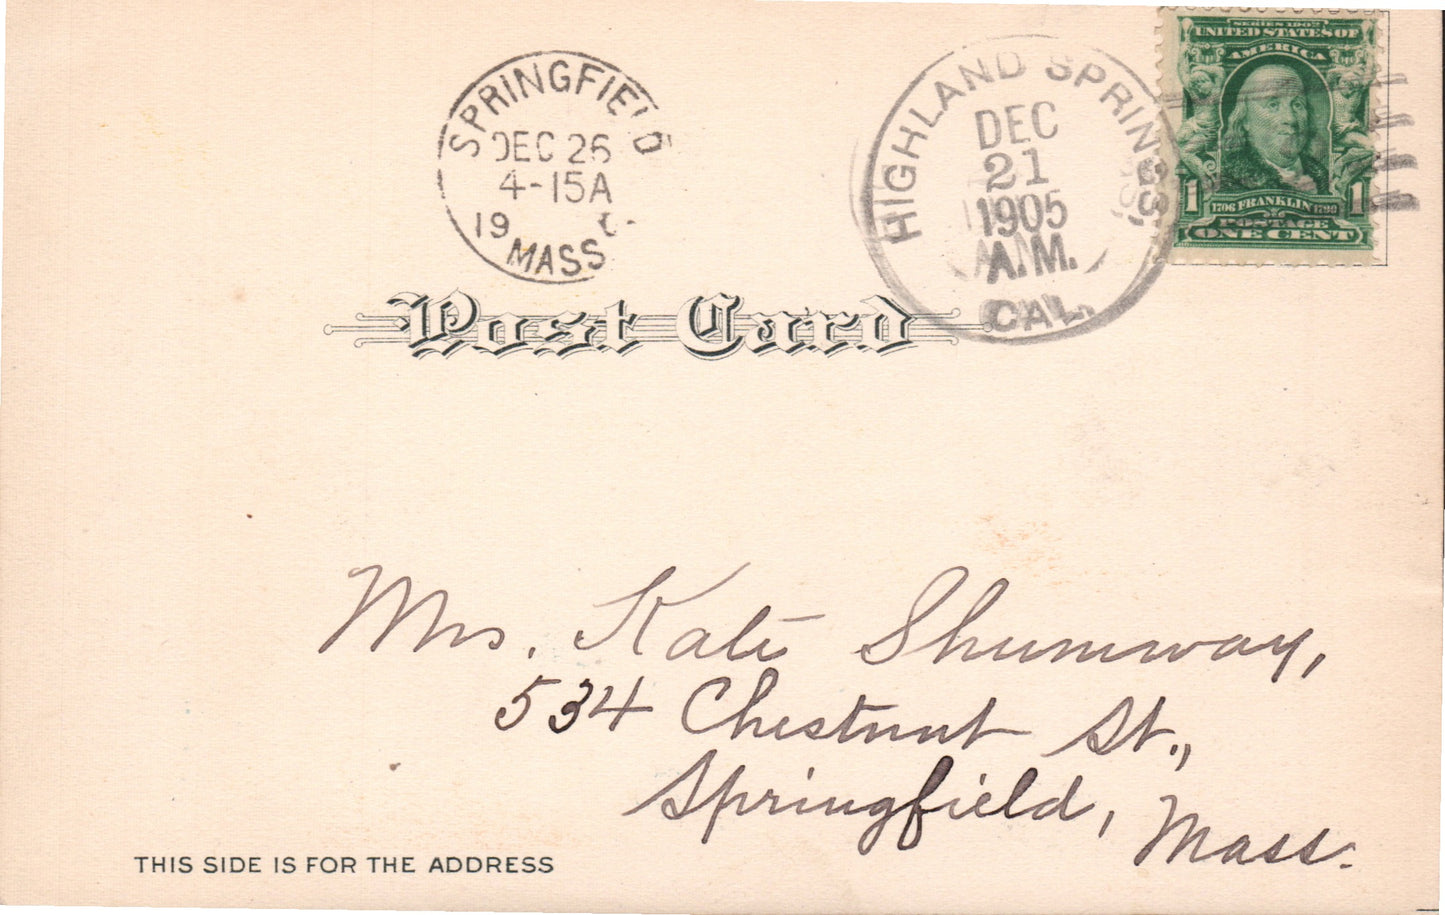 SPRINGFIELD
DEC 26
4-15A
19
MASS
HIGHLAND SPRINGS,
DEC
21
1905
A.M.
CAL.
SERIES 1902
UNITED STATES OF
AMERICA
1 1706 FRANKLIN 1790 1
POSTAGE
ONE CENT
Post Card
Mrs. Kate Shumway,
534 Chestnut St.,
Springfield, Mass.
THIS SIDE IS FOR THE ADDRESS